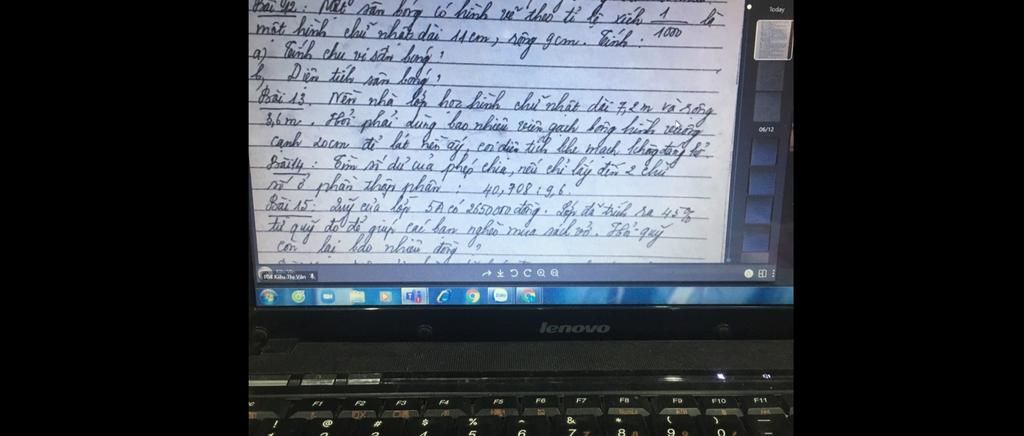 Bài 12: Một sân bóng có hình vẽ theo tỉ lệ xích 1/1000 là
một hình chữ nhật dài 11cm, rộng 9cm. Tính:
a) Tính chu vi sân bóng?
b, Diện tích sân bóng?
Bài 13. Nền nhà lớp học hình chữ nhật dài 7,2m và rộng
3,6m. Hỏi phải dùng bao nhiêu viên gạch bông hình vuông
cạnh 20cm để lát nền ấy, coi diện tích khe mạch không đáng kể.
Bài 14: Tìm số dư của phép chia, nếu chỉ lấy đến 2 chữ
số ở phần thập phân: 40,708 : 9,6
Bài 15: Quỹ của lớp 5A có 2650000 đồng. Lớp đã trích ra 45%
từ quỹ đó để giúp các bạn nghèo mua sách vở. Hỏi quỹ
còn lại bao nhiêu đồng?
Today
06/12
Kiều Thị Vân
lenovo
F1 F2 F3 F4 F5 F6 F7 F8 F9 F10 F11
! @ # $ % ^ & * ( )
7 8 9 0